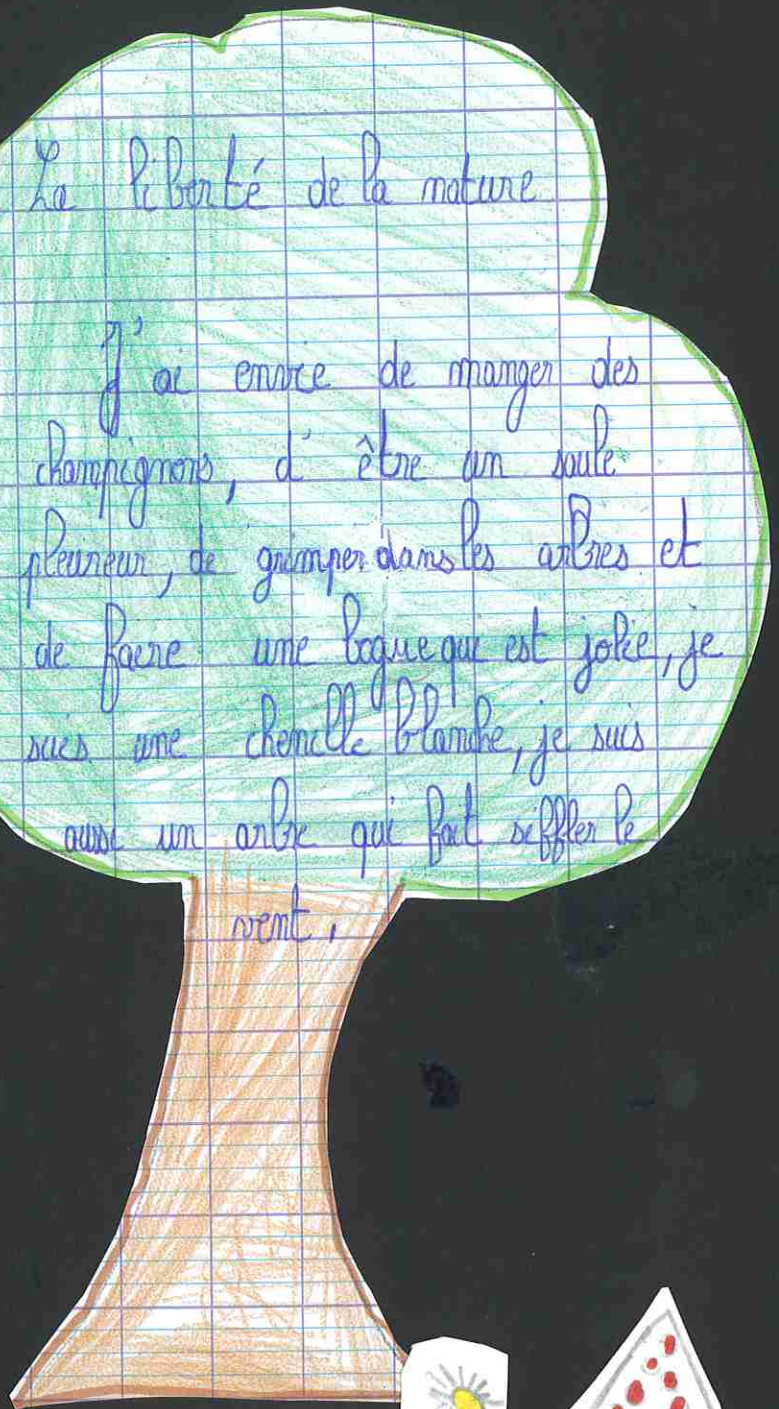 La liberté de la nature
J'ai envie de manger des
champignons, d'être un saule
pleureur, de grimper dans les arbres et
de faire une bogue qui est jolie, je
suis une chenille blanche, je suis
aussi un arbre qui fait siffler le
vent,